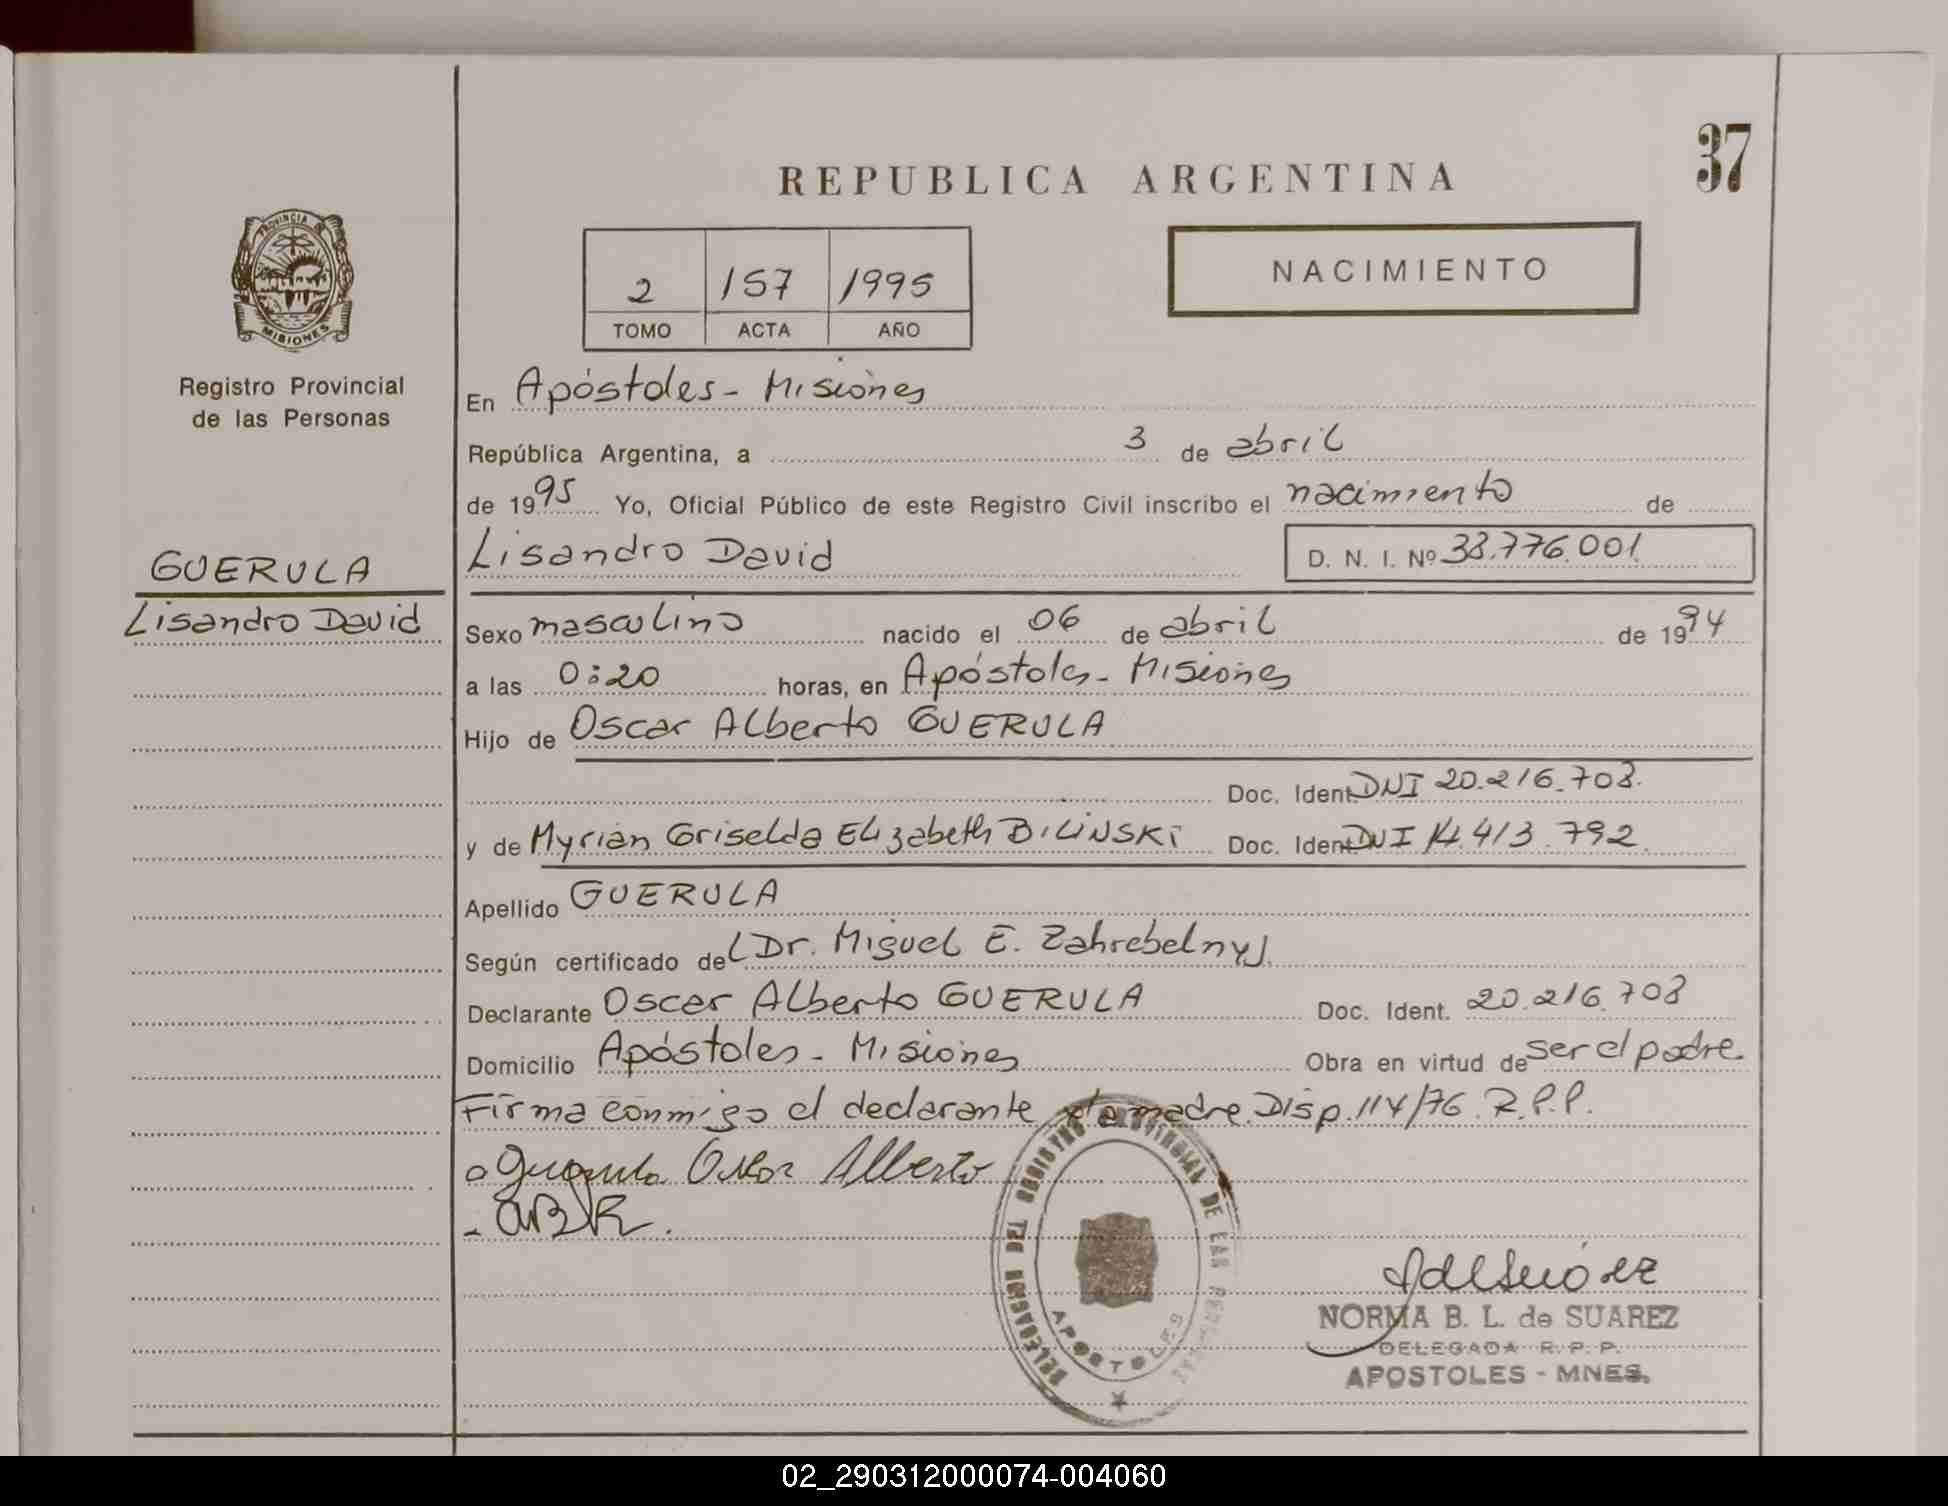 37
REPUBLICA ARGENTINA
PROVINCIA DE
MISIONES
2 157 1995
TOMO ACTA AÑO
NACIMIENTO
Registro Provincial
de las Personas
En Apóstoles - Misiones
República Argentina, a 3 de abril
de 1995 Yo, Oficial Público de este Registro Civil inscribo el nacimiento de
GUERULA
Lisandro David D. N. I. Nº 38.776.001
Lisandro David
Sexo masculino nacido el 06 de abril de 1994
a las 0:20 horas, en Apóstoles - Misiones
Hijo de Oscar Alberto GUERULA
Doc. Ident. DNI 20.216.708.
y de Myrian Griselda Elizabeth BILINSKI Doc. Ident. DNI 14.413.792.
Apellido GUERULA
Según certificado de (Dr. Miguel E. Zahrebelny).
Declarante Oscar Alberto GUERULA Doc. Ident. 20.216.708
Domicilio Apóstoles - Misiones Obra en virtud de ser el padre.
Firma conmigo el declarante y la madre. Disp. 114/76. R.P.P.
Guerula Oscar Alberto
DELEGACION DEL REGISTRO PROVINCIAL DE LAS PERSONAS
APOSTOLES
NORMA B. L. de SUAREZ
DELEGADA R. P. P.
APOSTOLES - MNES.
02_290312000074-004060